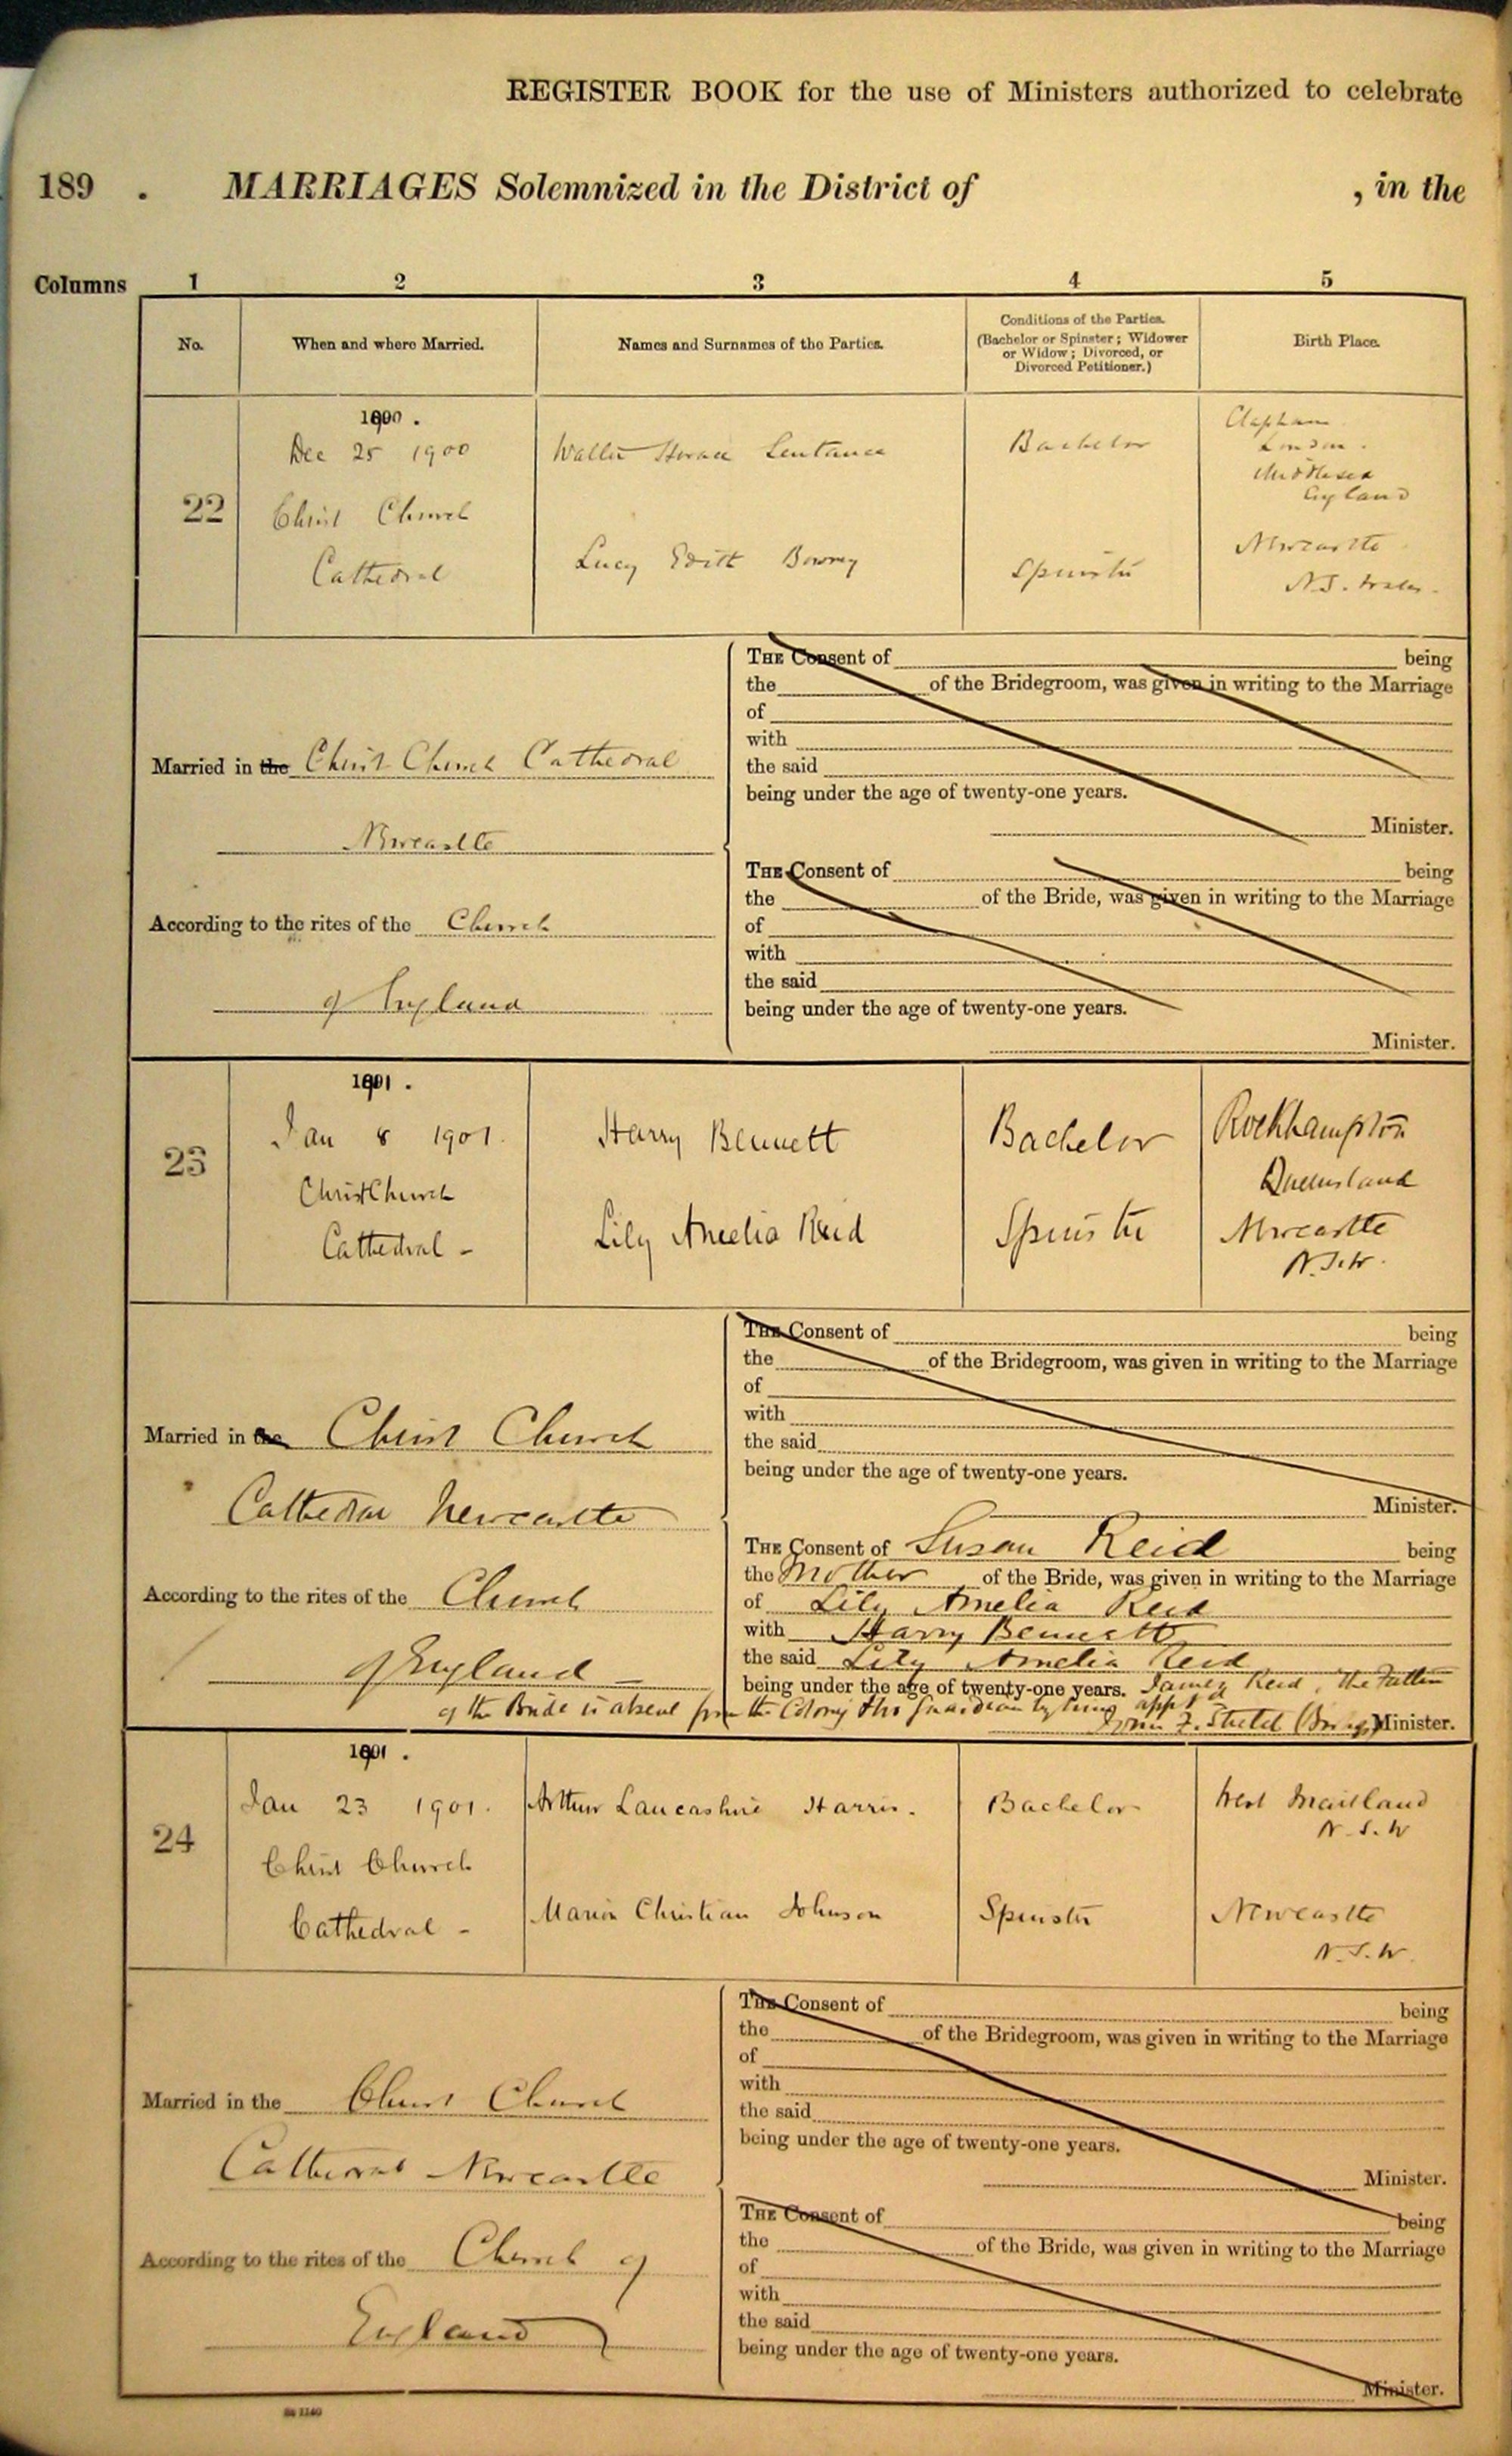 REGISTER BOOK for the use of Ministers authorized to celebrate
189 . MARRIAGES Solemnized in the District of , in the
Columns 1 2 3 4 5
No. When and where Married. Names and Surnames of the Parties. Conditions of the Parties. (Bachelor or Spinster; Widower or Widow; Divorced, or Divorced Petitioner.) Birth Place.
1900 .
22
Dec 25 1900
Christ Church
Cathedral
Walter Horace Sentance
Lucy Edith Bowrey
Bachelor
Spinster
Clapham
London.
Middlesex
England
Newcastle
N.S. Wales.
Married in the Christ Church Cathedral
Newcastle
According to the rites of the Church
of England
THE Consent of being
the of the Bridegroom, was given in writing to the Marriage
of
with
the said
being under the age of twenty-one years.
Minister.
THE Consent of being
the of the Bride, was given in writing to the Marriage
of
with
the said
being under the age of twenty-one years.
Minister.
1901 .
23
Jan 8 1901.
Christ Church
Cathedral -
Harry Bennett
Lily Amelia Reid
Bachelor
Spinster
Rockhampton
Queensland
Newcastle
N.S.W.
Married in the Christ Church
Cathedral Newcastle
According to the rites of the Church
of England
THE Consent of being
the of the Bridegroom, was given in writing to the Marriage
of
with
the said
being under the age of twenty-one years.
Minister.
THE Consent of Susan Reid being
the Mother of the Bride, was given in writing to the Marriage
of Lily Amelia Reid
with Harry Bennett
the said Lily Amelia Reid
being under the age of twenty-one years. James Reid, the Father
of the Bride is absent from the Colony the Guardian by him app
Minister.
1901 .
24
Jan 23 1901.
Christ Church
Cathedral -
Arthur Lancashire Harris.
Marion Christian Johnson
Bachelor
Spinster
West Maitland
N.S.W
Newcastle
N.S.W.
Married in the Christ Church
Cathedral Newcastle
According to the rites of the Church of
England
THE Consent of being
the of the Bridegroom, was given in writing to the Marriage
of
with
the said
being under the age of twenty-one years.
Minister.
THE Consent of being
the of the Bride, was given in writing to the Marriage
of
with
the said
being under the age of twenty-one years.
Minister.